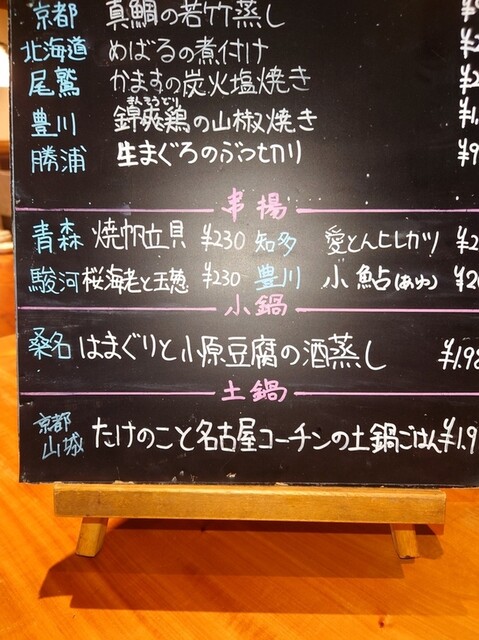 京都 真鯛の若竹蒸し
北海道 めばるの煮付け ¥2
尾鷲 かますの炭火塩焼き ¥2
きんそうどり
豊川 錦爽鶏の山椒焼き ¥1,
勝浦 生まぐろのぶつ切り ¥9
串揚
青森 焼帆立貝 ¥230 知多 愛とんヒレカツ ¥2
駿河 桜海老と玉葱 ¥230 豊川 小鮎(あゆ) ¥20
小鍋
桑名 はまぐりと小原豆腐の酒蒸し ¥1.98
土鍋
京都山城 たけのこと名古屋コーチンの土鍋ごはん ¥1.9